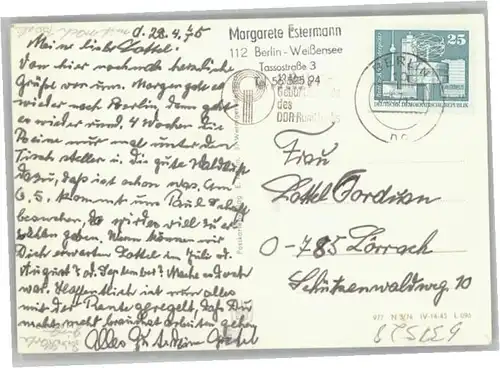 d. 28.4.75
Meine liebe Lottel.
Von hier nochmals herzliche
Grüße von uns. Morgen geht es
wieder nach Berlin, dann geht
es wieder rund. 4 Wochen die
Beine nur mal unter den
Tisch stellen u. die gute Waldluft
dazu, das ist schon was. Am
6.5. kommt uns Paul
besuchen, da wird es viel zu er-
zählen geben. Wann können wir
Dich erwarten Lottel im Juli od.
August? od. September? Mache es doch
war. Hoffentlich ist nun alles
mit der Rente geregelt, daß Du
nicht mehr brauchst arbeiten gehen
Alles Gute
Margarete Estermann
112 Berlin-Weißensee
Tassostraße 3
des
DDR-Rundfunks
BERLIN
25
DEUTSCHE DEMOKRATISCHE REPUBLIK
Frau
Lottel Gordian
0-785 Lörrach
Schützenwaldweg 10
IV-14-45